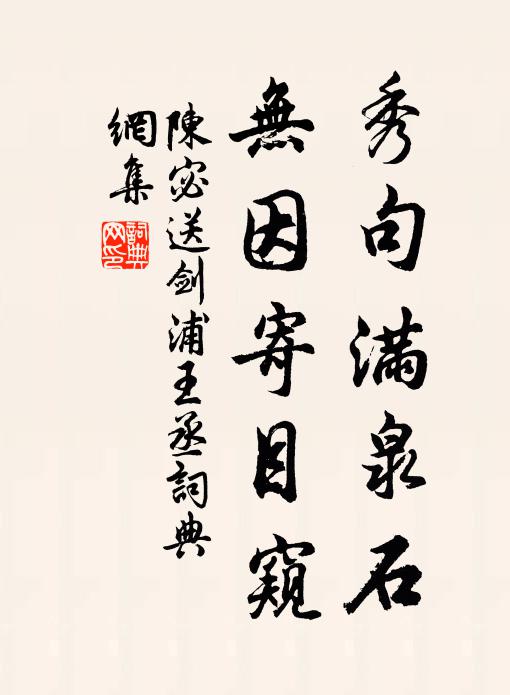 秀句滿泉石
無因寄目窺
陳宓送劍浦王丞詞典
網集
詞典网印